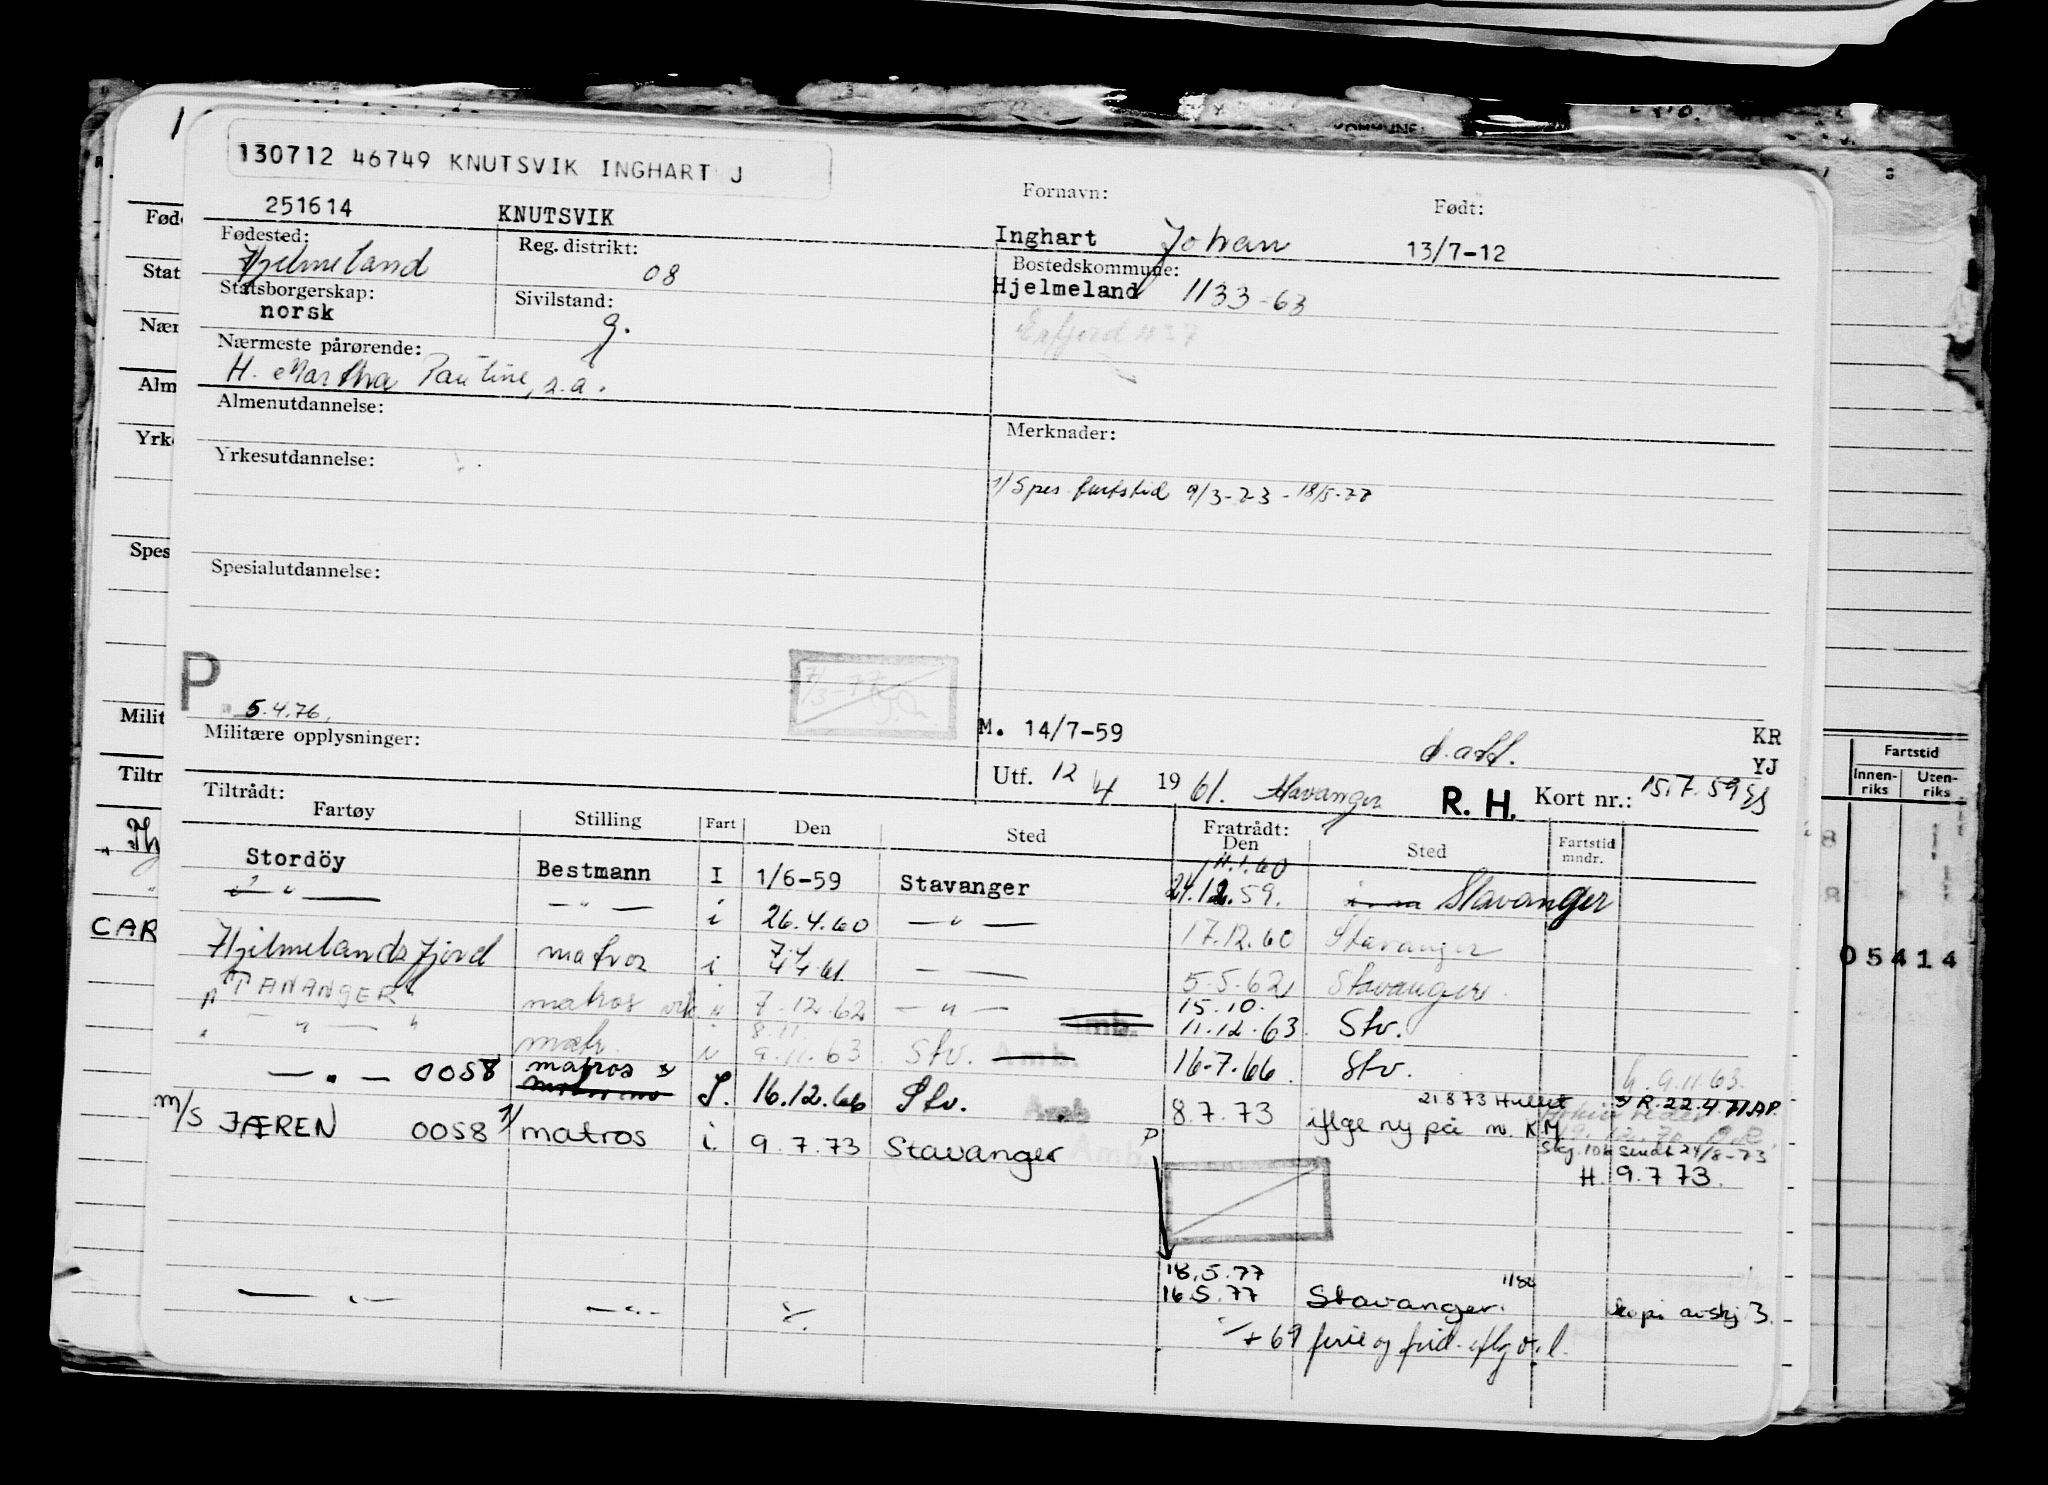 130712 46749 KNUTSVIK INGHART J
Fornavn: Født:
251614 KNUTSVIK Inghart Johan 13/7-12
Fødested: Reg. distrikt: Bostedskommune:
Hjelmeland 08 Hjelmeland 1133-63
Statsborgerskap: Sivilstand:
norsk g. Erfjord 1137
Nærmeste pårørende:
H. Martha Pauline, s.a.
Almenutdannelse: Merknader:
Yrkesutdannelse:
1/ Spes fartstid 9/3-73 - 18/5-77
Spesialutdannelse:
P
5.4.76.
Militære opplysninger: M. 14/7-59 KR
YJ
Utf. 12/4 1961. Stavanger R. H. Kort nr.: 15.7.59
Tiltrådt: Fratrådt:
Fartøy Stilling Fart Den Sted Den Sted Fartstid mndr.
11.1.60
Stordöy Bestmann I 1/6-59 Stavanger 24.12.59. Stavanger
— " — — " — i 26.4.60 — " — 17.12.60 Stavanger
Hjelmelandsfjord matros i 7.4 4.4.61 — " — 5.5.62 Stavanger
"TANANGER" matros 7.12.62 — " — 15.10. 11.12.63. Stv.
— " — matr. 8.11. 9.11.63 Stv. Amb. 16-7.66 Stv. 9.11.63.
— " — 0058 matros S. 16.12.66 Stv. Amb 8.7.73 21 8 73 Hullet iflge ny på m. KM R.22.4.71 AP
Skj. 106 sendt 24/8-73
m/s JÆREN 0058 1/ matros i. 9.7.73 Stavanger Amb. P H. 9.7 73.
18.5.77
— " — — " — 16.5.77 Stavanger. 1/80 kopi avskj 3.
+ 69 ferie og frid. iflg
Føde
Stat
Nær
Alm
Yrke
Spes
Milit
Tiltr
CAR
Fartstid
Innen-riks Uten-riks
05414